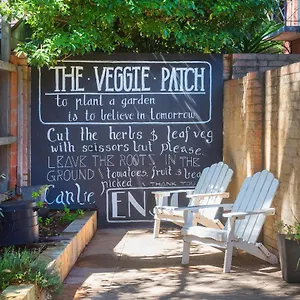 THE · VEGGIE · PATCH
to plant a garden
is to believe in tomorrow
Cut the herbs & leaf veg
with scissors but please
LEAVE THE ROOTS IN THE
GROUND tomatoes, fruit,
Garlic etc can be
picked THANK YOU
ENJ